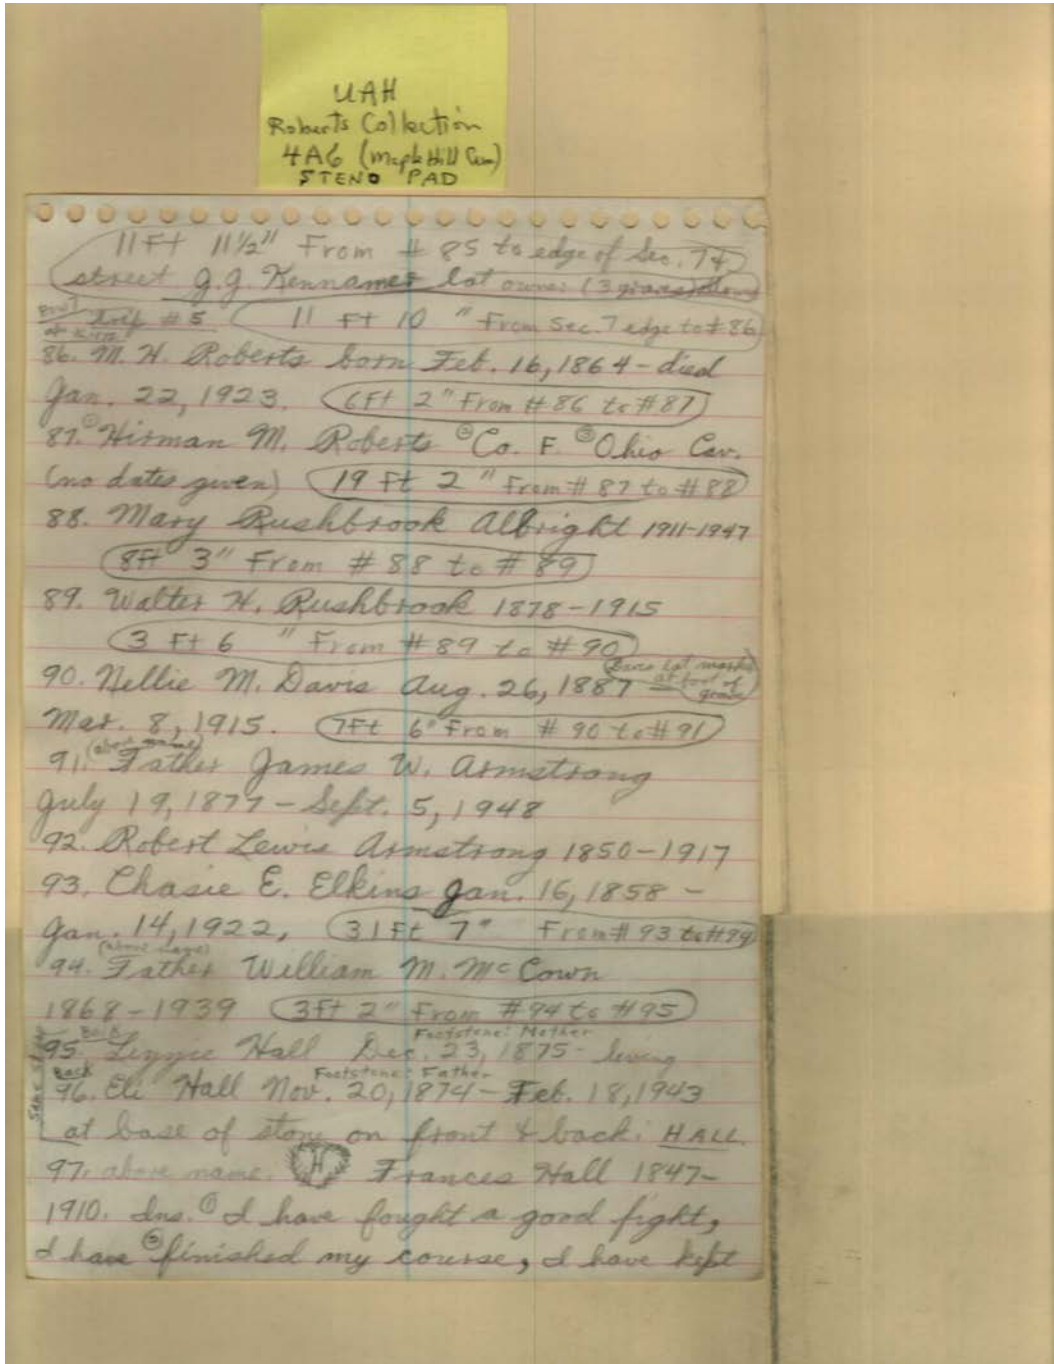 UAH
Roberts Collection
4A6 (Maple Hill Cem)
STENO PAD
11 Ft 11 1/2" From # 85 to edge of Sec. 7 &
street J.G. Kennamer lot owner (3 graves)
# 5 11 Ft 10 " From Sec. 7 edge to # 86
86. M. H. Roberts born Feb. 16, 1864 - died
Jan. 22, 1923. 6 Ft 2" From # 86 to # 87
87. ① Hirman M. Roberts ② Co. F. ③ Ohio Cav.
(no dates given) 19 Ft 2 " From # 87 to # 88
88. Mary Rushbrook Albright 1911-1947
8 Ft 3" From # 88 to # 89
89. Walter H. Rushbrook 1878-1915
3 Ft 6 " From # 89 to # 90
Davis lot marker
at foot of
grave
90. Nellie M. Davis Aug. 26, 1887 -
Mar. 8, 1915. 7 Ft 6" From # 90 to # 91
(above name)
91. Father James W. Armstrong
July 19, 1877 - Sept. 5, 1948
92. Robert Lewis Armstrong 1850-1917
93. Chasie E. Elkins Jan. 16, 1858 -
Jan. 14, 1922, 31 Ft 7" From # 93 to # 94
(above name)
94. Father William M. McCown
1868-1939 3 Ft 2" From # 94 to # 95
Back Footstone: Mother
95. Lizzie Hall Dec. 23, 1875 - living
Back Footstone: Father
96. Eli Hall Nov. 20, 1874 - Feb. 18, 1943
Same stone
at base of stone on front & back: HALL
97. above name. H Frances Hall 1847-
1910. Ins. ① I have fought a good fight,
I have ② finished my course, I have kept